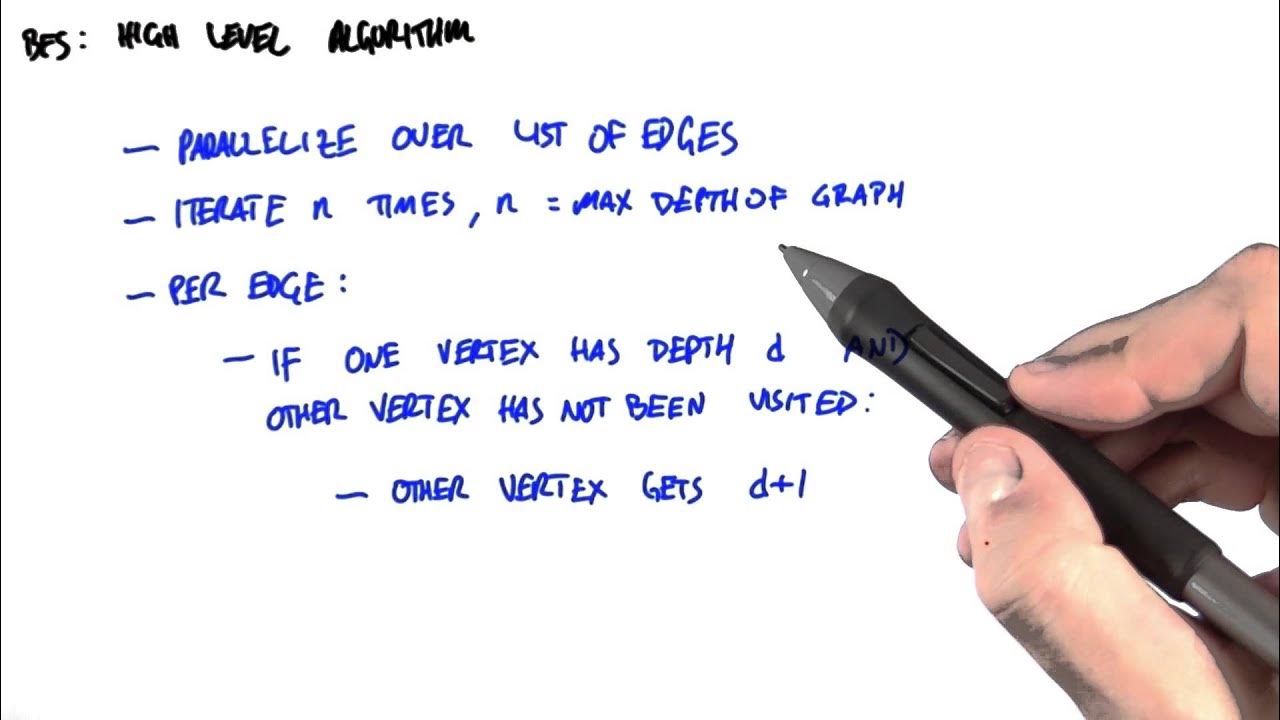 BFS: HIGH LEVEL ALGORITHM
— PARALLELIZE OVER LIST OF EDGES
— ITERATE n TIMES, n = MAX DEPTH OF GRAPH
— PER EDGE:
— IF ONE VERTEX HAS DEPTH d AND
OTHER VERTEX HAS NOT BEEN VISITED:
— OTHER VERTEX GETS d+1